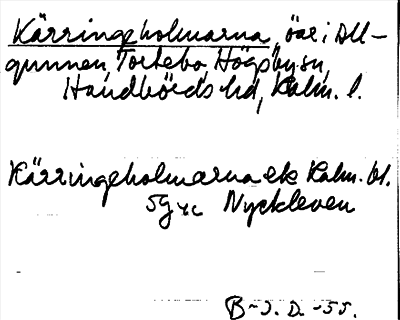 Käringeholmarna, öar i All-
gunnen, Tortebo, Högsby sn,
Handbörds hd, Kalm. l.
Käringeholmarna ek Kalm. bl.
5g Nyckleven
B-J. D. -55.